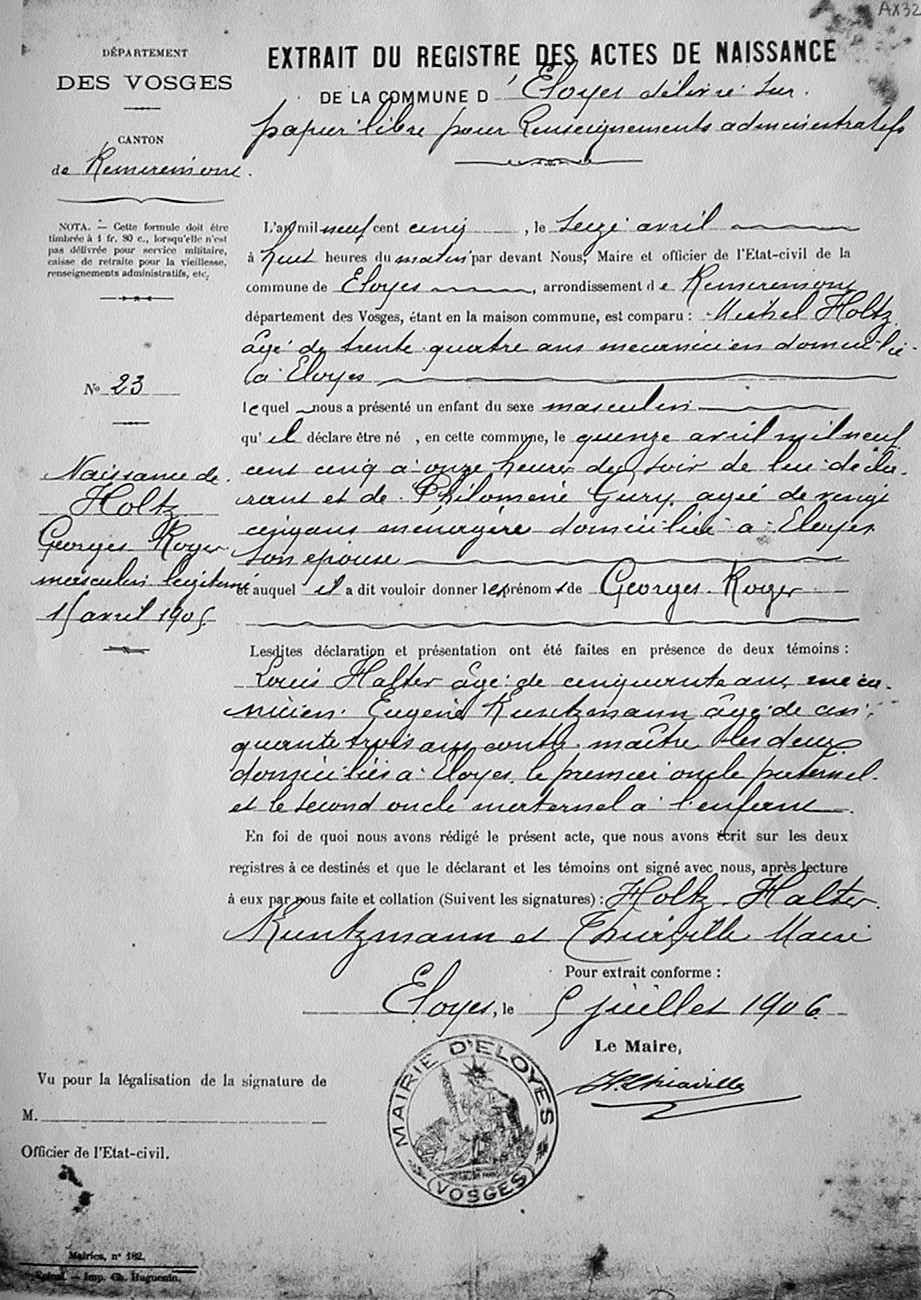 AX32
DÉPARTEMENT
DES VOSGES
CANTON
de Remiremont.
NOTA. — Cette formule doit être
timbrée à 1 fr. 80 c., lorsqu'elle n'est
pas délivrée pour service militaire,
caisse de retraite pour la vieillesse,
renseignements administratifs, etc.
N° 23
Naissance de
Holtz
Georges Roger
masculin légitime
15 avril 1905
EXTRAIT DU REGISTRE DES ACTES DE NAISSANCE
DE LA COMMUNE D'Eloyes délivré sur
papier libre pour Renseignements administratifs
L'an mil neuf cent cinq, le seize avril
à huit heures du matin par devant Nous, Maire et officier de l'Etat-civil de la
commune de Eloyes, arrondissement de Remiremont
département des Vosges, étant en la maison commune, est comparu : Michel Holtz
âgé de trente quatre ans mecanicien domicilié
à Eloyes
lequel nous a présenté un enfant du sexe masculin
qu'il déclare être né , en cette commune, le quinze avril mil neuf
cent cinq à onze heures du soir de lui décla-
rant et de Philomène Gury, agée de vingt
cinq ans ménagère domiciliée à Eloyes
son epouse
et auquel il a dit vouloir donner les prénoms de Georges Roger
Lesdites déclaration et présentation ont été faites en présence de deux témoins :
Louis Halter âgé de cinquante ans, méca-
nicien. Eugène Kuntzmann âgé de cin-
quante trois ans contre maître, les deux
domiciliés à Eloyes, le premier oncle paternel
et le second oncle maternel à l'enfant
En foi de quoi nous avons rédigé le présent acte, que nous avons écrit sur les deux
registres à ce destinés et que le déclarant et les témoins ont signé avec nous, après lecture
à eux par nous faite et collation (Suivent les signatures) : Holtz - Halter.
Kuntzmann et Thiaville Maire
Pour extrait conforme :
Eloyes, le 5 juillet 1906
Le Maire,
H. Thiaville
MAIRIE D'ELOYES
(VOSGES)
Vu pour la légalisation de la signature de
M.
Officier de l'Etat-civil.
Mairies, n° 182.
Epinal. — Imp. Ch. Huguenin.